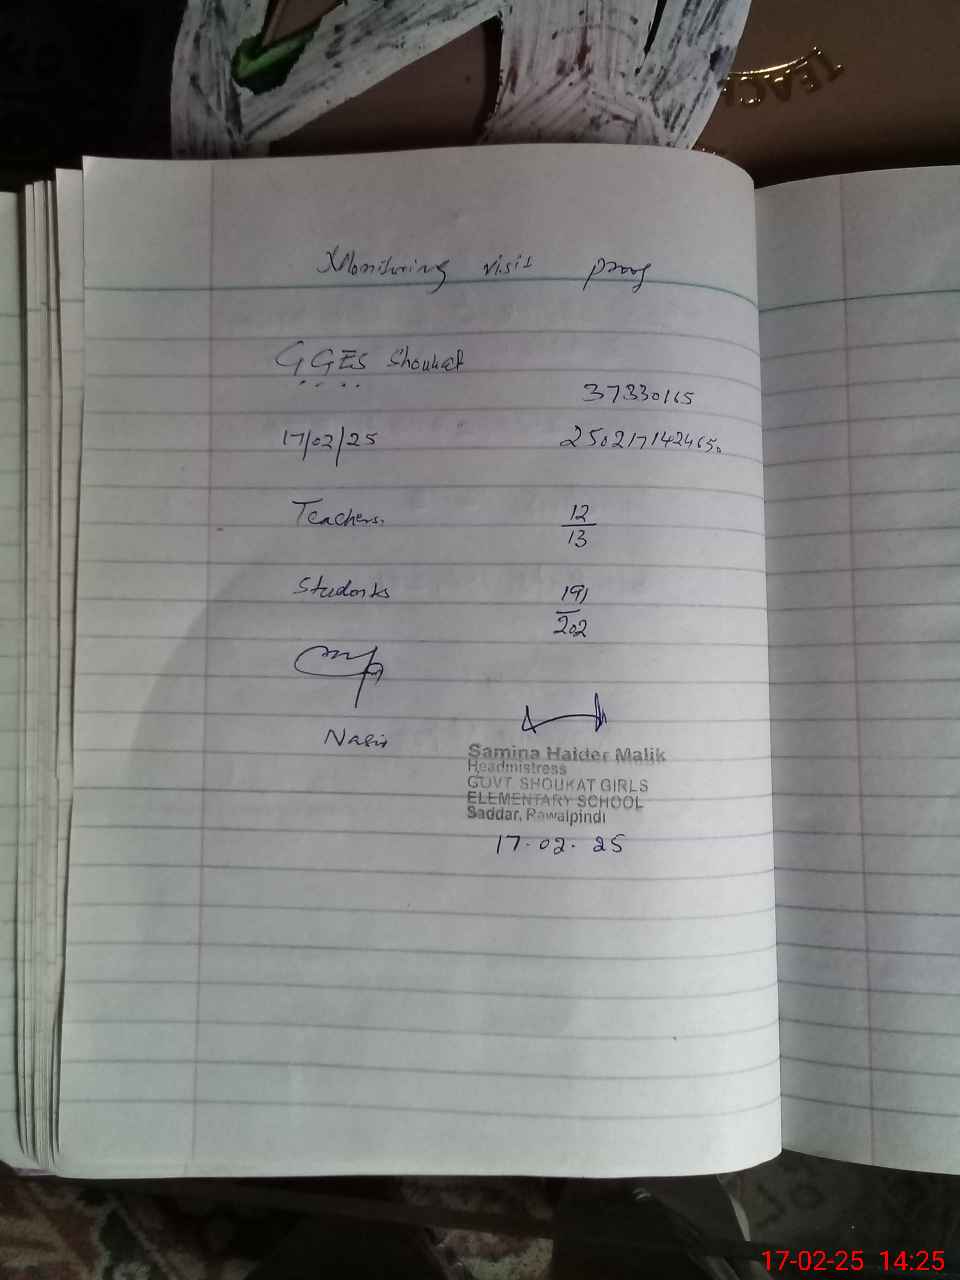 TEACH
Monitoring visit proof
GGES Shoukat
37330165
17/02/25
Teachers.
12
13
Students
191
202
Nasir
Samina Haider Malik
Headmistress
GOVT SHOUKAT GIRLS
ELEMENTARY SCHOOL
Saddar, Rawalpindi
17.02.25
17-02-25 14:25